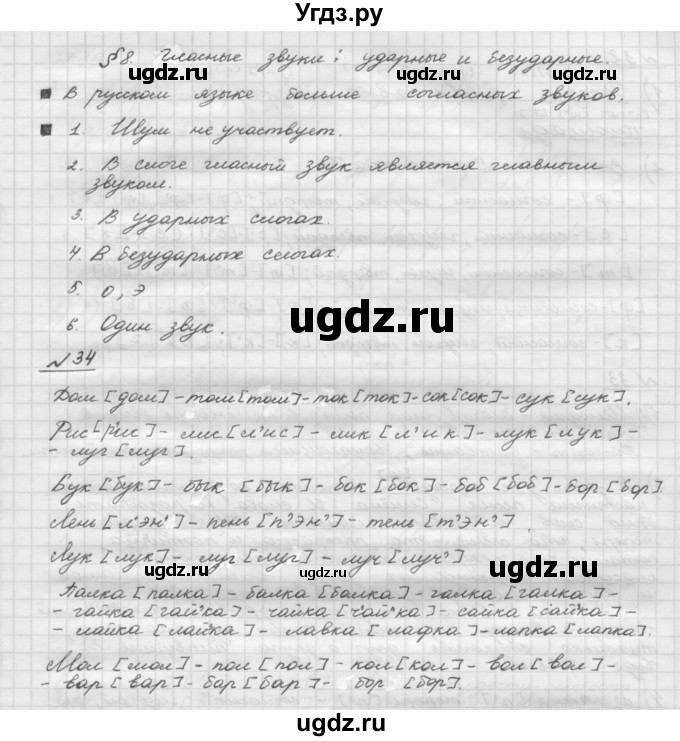 Угдз.ру
§8. Гласные звуки: ударные и безударные.
ugdz.ru ugdz.ru
В русском языке больше согласных звуков.
1. Шум не участвует.
2. В слоге гласный звук является главным
звуком.
ugdz.ru ugdz.ru
3. В ударных слогах.
4. В безударных слогах.
5. о, э
ugdz.ru
6. Один звук.
ugdz.ru
№34
Дом [дом] - том [том] - ток [ток] - сок [сок] - сук [сук].
Рис [р'ис] - лис [л'ис] - лик [л'ик] - лук [лук] -
- луг [луг].
ugdz.ru ugdz.ru
Бук [бук] - бык [бык] - бок [бок] - боб [боб] - бор [бор].
Лень [л'эн'] - пень [п'эн'] - тень [т'эн']
Лук [лук] - луг [луг] - луч [луч']
ugdz.ru ugdz.ru
Палка [палка] - балка [балка] - галка [галка] -
- гайка [гай'ка] - чайка [ч'ай'ка] - сайка [сай'ка] -
- лайка [лай'ка] - лавка [лафка] - лапка [лапка].
ugdz.ru ugdz.ru
Мол [мол] - пол [пол] - кол [кол] - вол [вол] -
- вар [вар] - бар [бар] - бор [бор].
ugdz.ru